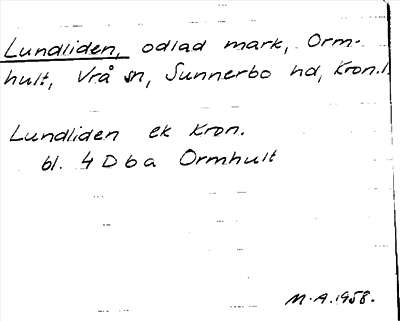 Lundliden, odlad mark, Orm-
hult, Vrå sn, Sunnerbo hd, Kron.l.
Lundliden ek Kron.
bl. 4 D b a Ormhult
M.A. 1958.